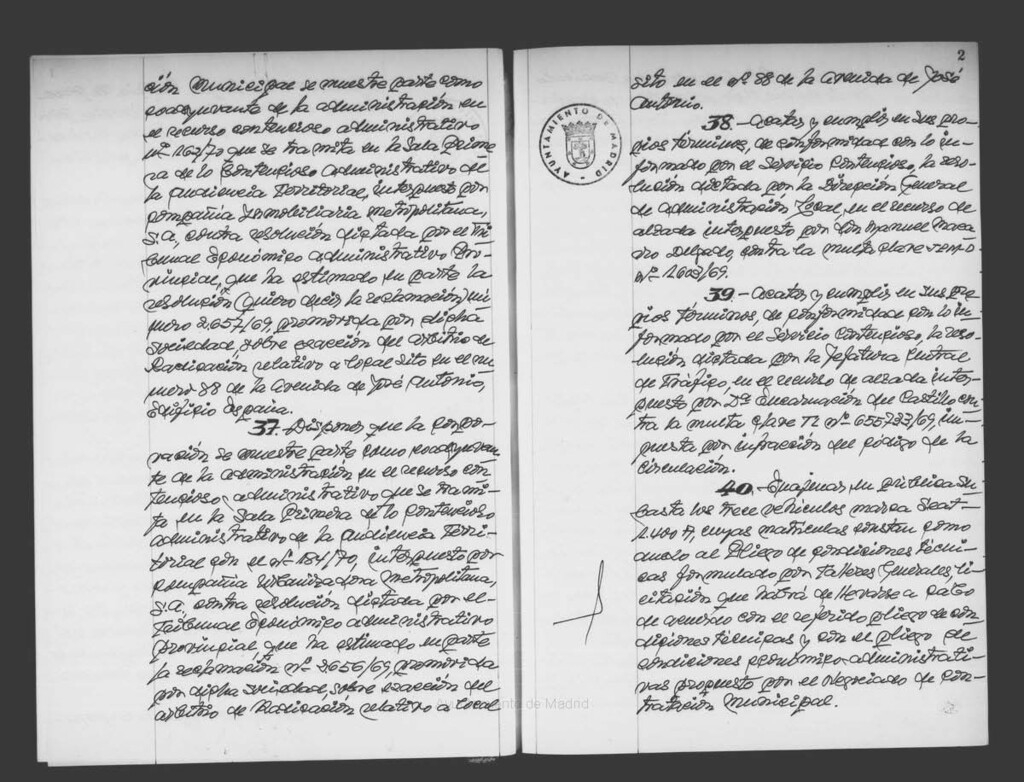 ción Municipal se muestre parte como
coadyuvante de la administración en
el recurso contencioso administrativo
nº 167/70 que se tramita en la Sala Prime-
ra de lo Contencioso Administrativo de
la Audiencia Territorial, interpuesto por
Compañía Inmobiliaria Metropolitana,
S.A, contra resolución dictada por el Tri-
bunal Económico Administrativo Pro-
vincial, que ha estimado en parte la
resolución (quiero decir la reclamación) nú-
mero 2657/69, promovida por dicha
sociedad, sobre exacción del arbitrio de
Radicación relativo a local sito en el nú-
mero 88 de la Avenida de José Antonio,
Edificio España.
37.- Disponer que la Corpo-
ración se muestre parte como coadyuvan-
te de la administración en el recurso con-
tencioso administrativo que se trami-
ta en la Sala Primera de lo Contencioso
administrativo de la Audiencia Terri-
torial con el nº 184/70, interpuesto por
Compañía Urbanizadora Metropolitana,
S.A. contra resolución dictada por el
Tribunal Económico administrativo
provincial que ha estimado en parte
la reclamación nº 2656/69, promovida
por dicha sociedad, sobre exacción del
arbitrio de Radicación relativo a local
2
sito en el nº 88 de la Avenida de José
Antonio.
AYUNTAMIENTO DE MADRID
38.- Acatar y cumplir en sus pro-
pios términos, de conformidad con lo in-
formado por el Servicio Contencioso, la reso-
lución dictada por la Dirección General
de Administración Local, en el recurso de
alzada interpuesto por Don Manuel
Delgado, contra la multa clave
nº 1603/69.
39.- Acatar y cumplir en sus pro-
pios términos, de conformidad con lo in-
formado por el Servicio Contencioso, la reso-
lución dictada por la Jefatura Central
de Tráfico, en el recurso de alzada inter-
puesto por Dª Encarnación del Castillo con-
tra la multa clave TI nº 655233/69, im-
puesta por infracción del código de la
circulación.
40.- Enajenar, en pública su-
basta los trece vehículos marca Seat-
1.400 A, cuyas matrículas constan como
anexo al Pliego de condiciones técni-
cas formulado por Talleres Generales, li-
citación que habrá de llevarse a cabo
de acuerdo con el referido pliego de con-
diciones técnicas y con el pliego de
condiciones económico-administrati-
vas propuesto por el Negociado de Con-
tratación Municipal.
Ayuntamiento de Madrid